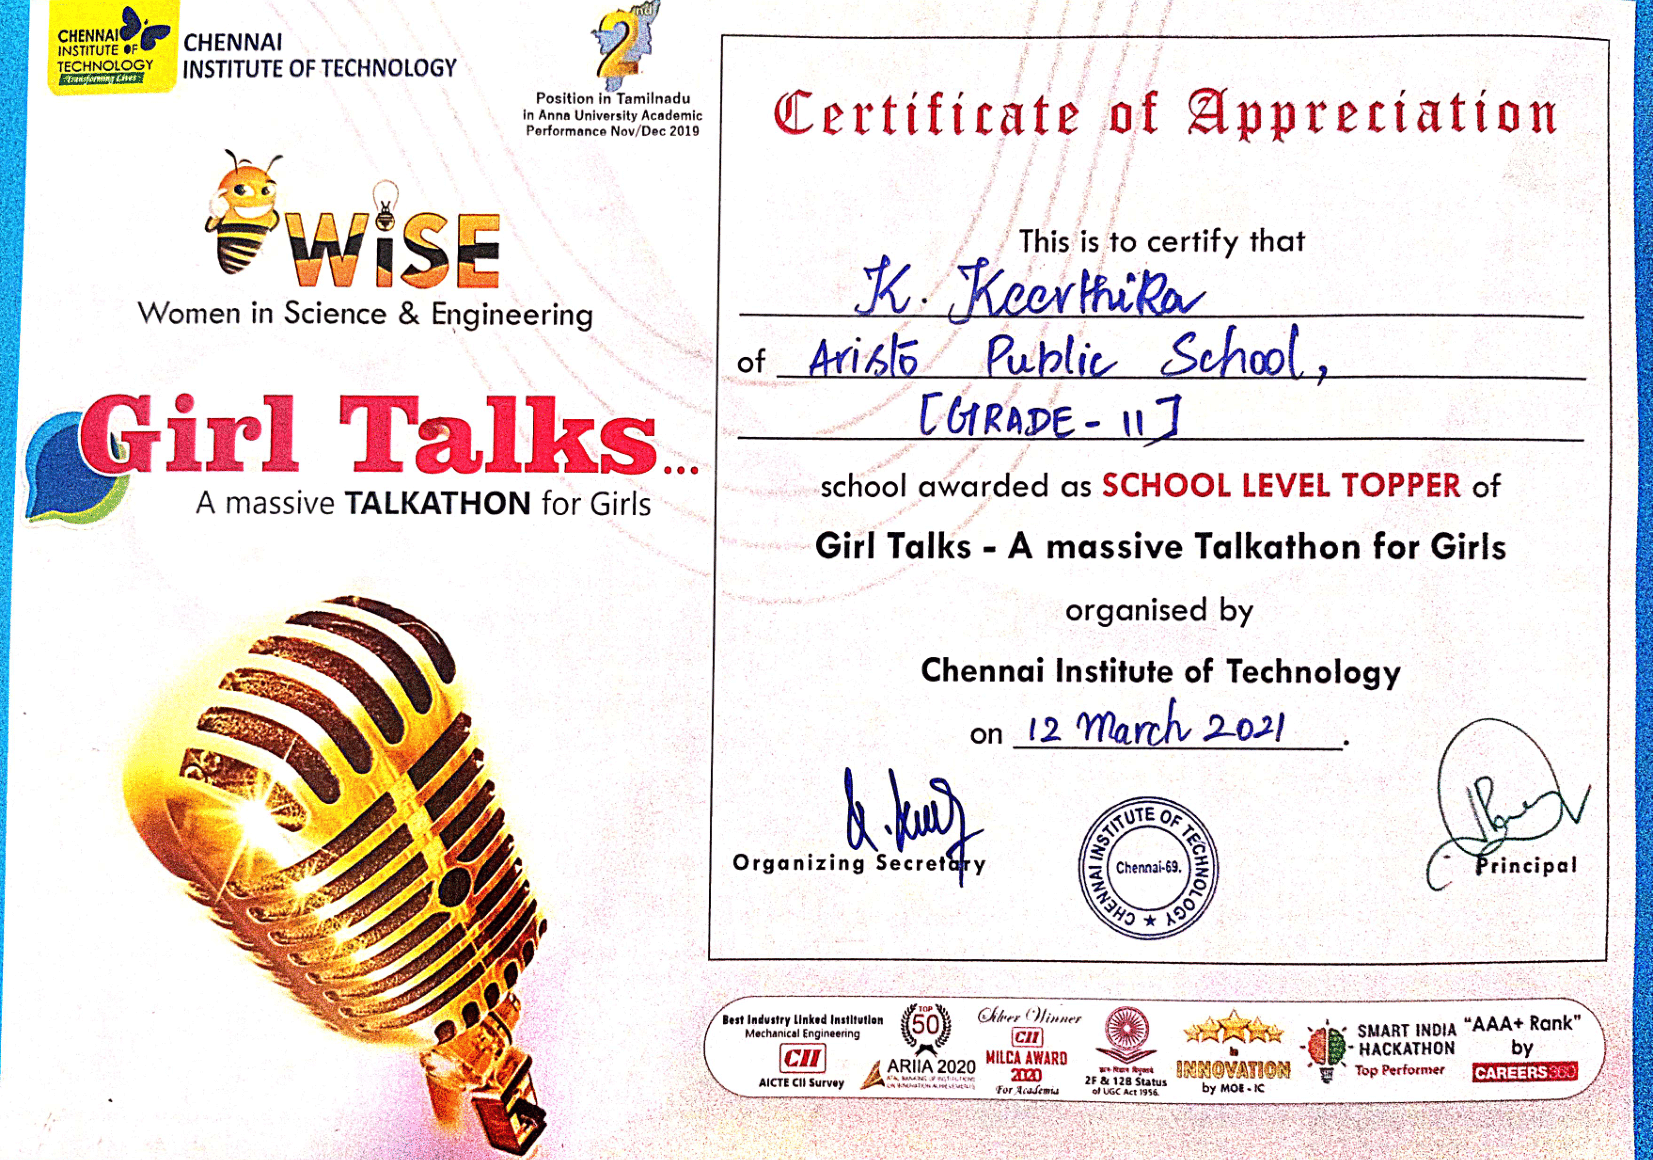 CHENNAI
INSTITUTE OF
TECHNOLOGY
Transforming Lives
CHENNAI
INSTITUTE OF TECHNOLOGY
2nd
Position in Tamilnadu
in Anna University Academic
Performance Nov/Dec 2019
WiSE
Women in Science & Engineering
Girl Talks...
A massive TALKATHON for Girls
Certificate of Appreciation
This is to certify that
K. Keerthika
of Aristo Public School,
[GRADE - 11]
school awarded as SCHOOL LEVEL TOPPER of
Girl Talks - A massive Talkathon for Girls
organised by
Chennai Institute of Technology
on 12 March 2021.
Organizing Secretary
CHENNAI INSTITUTE OF TECHNOLOGY ★
Chennai-69.
Principal
Best Industry Linked Institution
Mechanical Engineering
CII
AICTE CII Survey
TOP
50
ARIIA 2020
ATAL RANKING OF INSTITUTIONS
ON INNOVATION ACHIEVEMENTS
Silver Winner
CII
MILCA AWARD
2020
For Academia
2F & 12B Status
of UGC Act 1956.
in
INNOVATION
by MOE - IC
SMART INDIA
HACKATHON
Top Performer
"AAA+ Rank"
by
CAREERS360